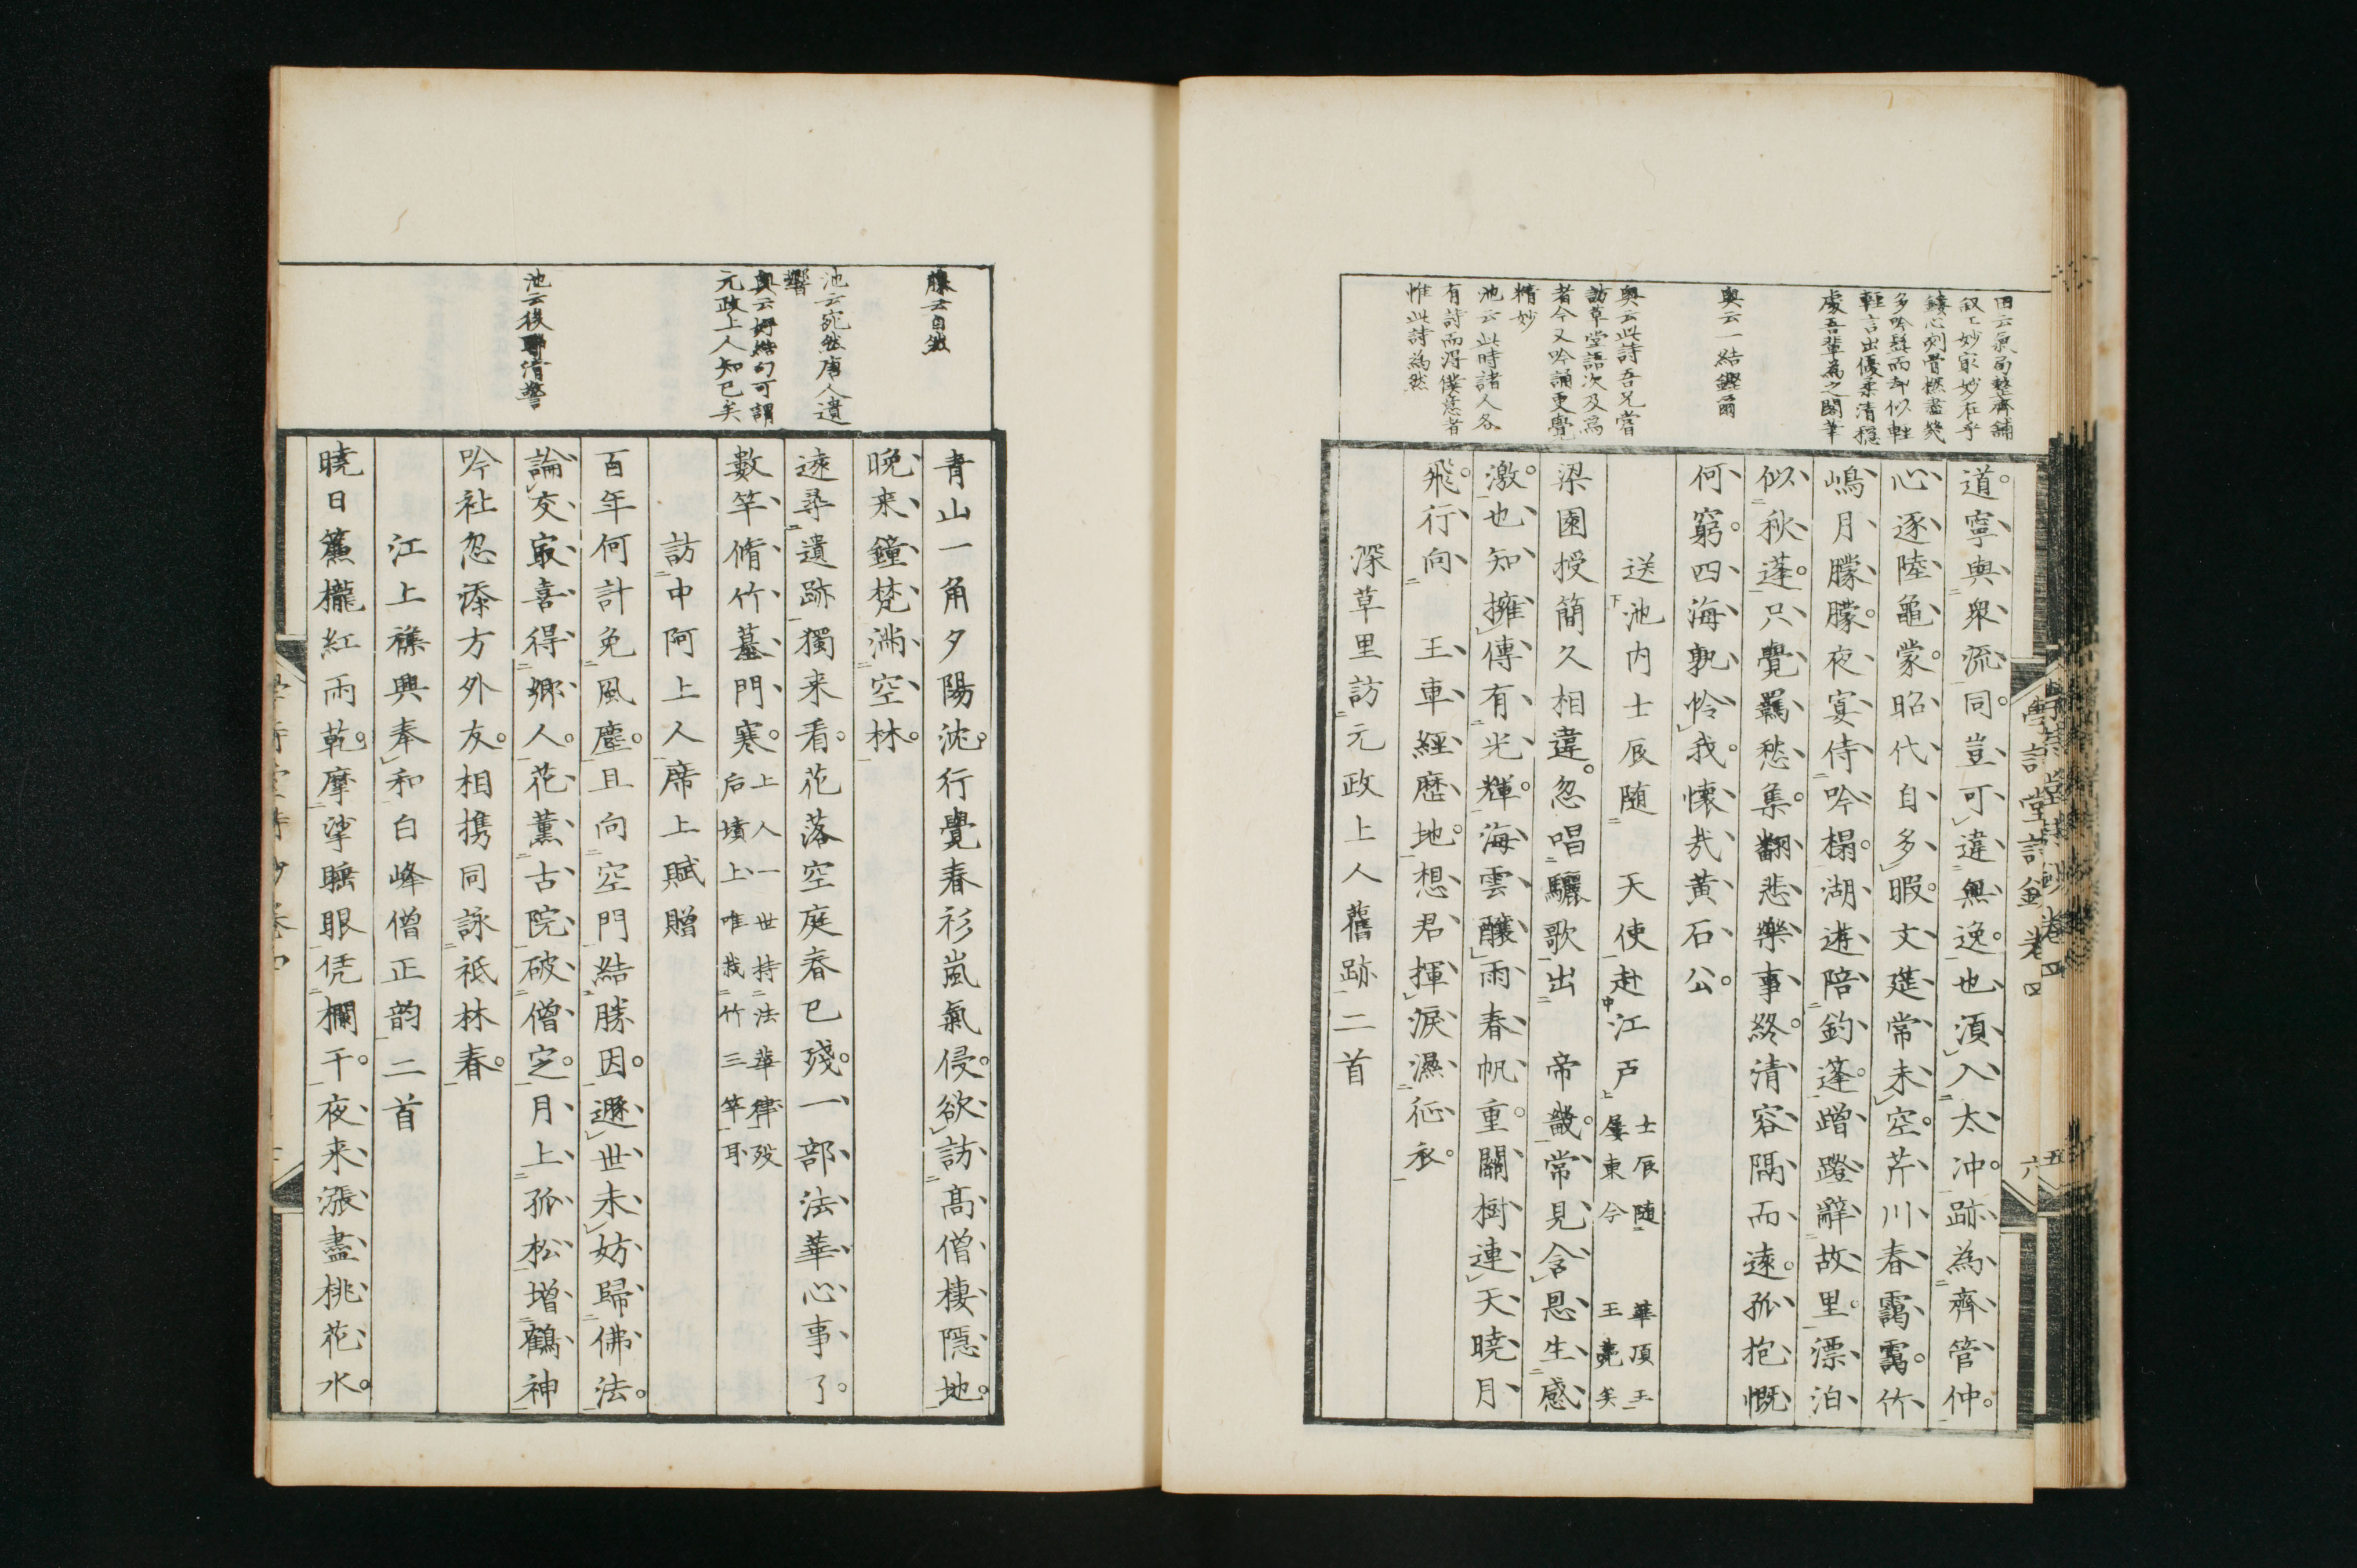 田云氣局整齊舖
叙工妙家妙在乎
鏤心刻骨撚盡幾
多吟髭而却似輕
輕言出優柔清穩
處吾輩為之閣筆
奥云一結鏗爾
奥云此詩吾兄嘗
訪草堂語次及為
者今又吟誦更覺
精妙
池云此時諸人各
有詩而得僕意者
惟此詩為然
道寧與衆流同豈可違無逸也須入太冲跡為齊管仲
心逐陸龜蒙昭代自多暇文莚常未空芹川春靄靄竹
嶋月朦朦夜宴侍吟榻湖遊陪釣篷蹭蹬辭故里漂泊
似秋蓬只覺羈愁集翻悲樂事終清容隔而遠孤抱慨
何窮四海孰怜我懷哉黃石公
送池内士辰随 天使赴江戸 士辰随 華頂王
屡東今 王薨矣
梁園授簡久相違忽唱驪歌出 帝畿常見含恩生感
激也知擁傳有光輝海雲釀雨春帆重關樹連天曉月
飛行向 王車經歴地想君揮淚濕征衣
深草里訪元政上人舊跡二首
藤云自然
池云宛然唐人遺
響
奥云好結句可謂
元政上人知己矣
池云後聯清警
青山一角夕陽沈行覺春衫嵐氣侵欲訪高僧棲隱地
晩来鐘梵滿空林
遠尋遺跡獨来看花落空庭春已殘一部法華心事了
數竿脩竹墓門寒 上人一世持法華律歿
后墳上唯栽竹三竿耳
訪中阿上人席上賦贈
百年何計免風塵且向空門結勝因遯世未妨歸佛法
論交最喜得郷人花薰古院破僧定月上孤松増鶴神
吟社忽添方外友相携同詠祗林春
江上襍興奉和白峰僧正韵二首
曉日簾櫳紅雨乾摩挲睡眼凭欄干夜来漲盡桃花水